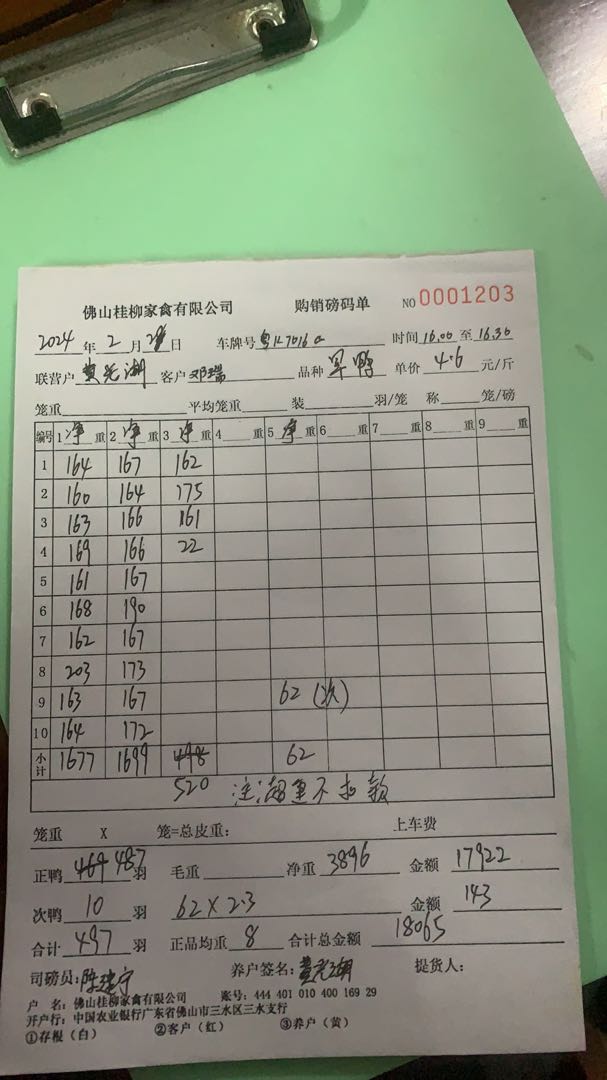 佛山桂柳家禽有限公司 购销磅码单 NO 0001203
2024年2月 日 车牌号 时间16.00至16.30
联营户 客户邓瑞 品种 单价4.6元/斤
笼重 平均笼重 装 羽/笼 称 笼/磅
编号 1净重 2净重 3净重 4重 5净重 6重 7重 8重 9重
1 164 167 162
2 160 164 175
3 163 166 161
4 169 166 22
5 161 167
6 168 190
7 162 167
8 203 173
9 163 167 62(次)
10 164 172
小计 1677 1699 498 62
520 注:超重不扣款
笼重 X 笼=总皮重: 上车费
正鸭 464 487羽 毛重 净重3896 金额17922
次鸭10羽 62×2.3 金额143
合计497羽 正品均重8 合计总金额18065
司磅员:陈建宁 养户签名: 提货人:
户 名:佛山桂柳家禽有限公司 账号:444 401 010 400 169 29
开户行:中国农业银行广东省佛山市三水区三水支行
①存根(白) ②客户(红) ③养户(黄)